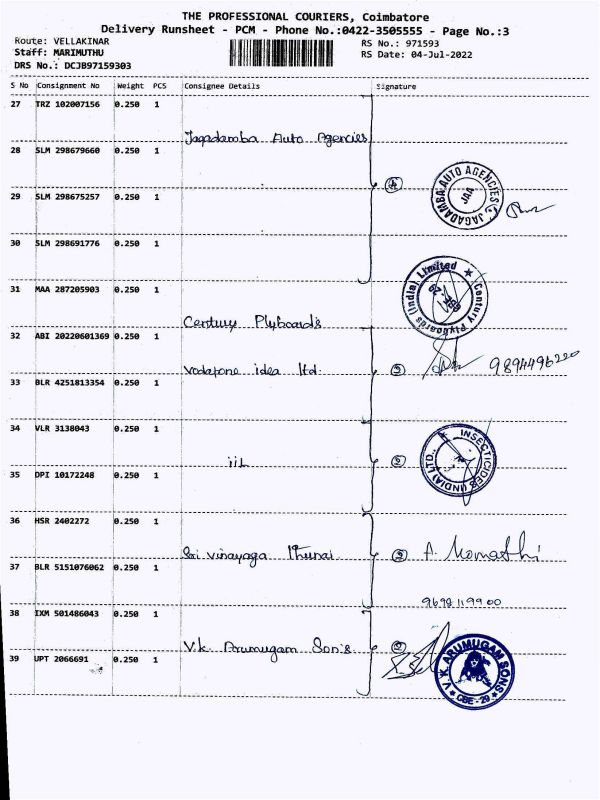 THE PROFESSIONAL COURIERS, Coimbatore
Delivery Runsheet - PCM - Phone No.:0422-3505555 - Page No.:3
Route: VELLAKINAR RS No.: 971593
Staff: MARIMUTHU RS Date: 04-Jul-2022
DRS No.: DCJB97159303
S No Consignment No Weight PCS Consignee Details Signature
27 TRZ 102007156 0.250 1
Jagadamba Auto Agencies
28 SLM 298679660 0.250 1
4
JAGADAMBA AUTO AGENCIES
JAA
29 SLM 298675257 0.250 1
30 SLM 298691776 0.250 1
31 MAA 287205903 0.250 1
Century Plyboards (India) Limited
Century Plyboards
32 ABI 20220601369 0.250 1
Vodafone idea ltd
33 BLR 4251813354 0.250 1
34 VLR 3138043 0.250 1
iiL
INSECTICIDES (INDIA) LTD.
35 DPI 10172248 0.250 1
36 HSR 2402272 0.250 1
Sri Vinayaga Thunai
37 BLR 5151076062 0.250 1
9698119900
38 IXM 501486043 0.250 1
V.K. Arumugam Son's
39 UPT 2066691 0.250 1
V. K. ARUMUGAM SONS
CBE - 29